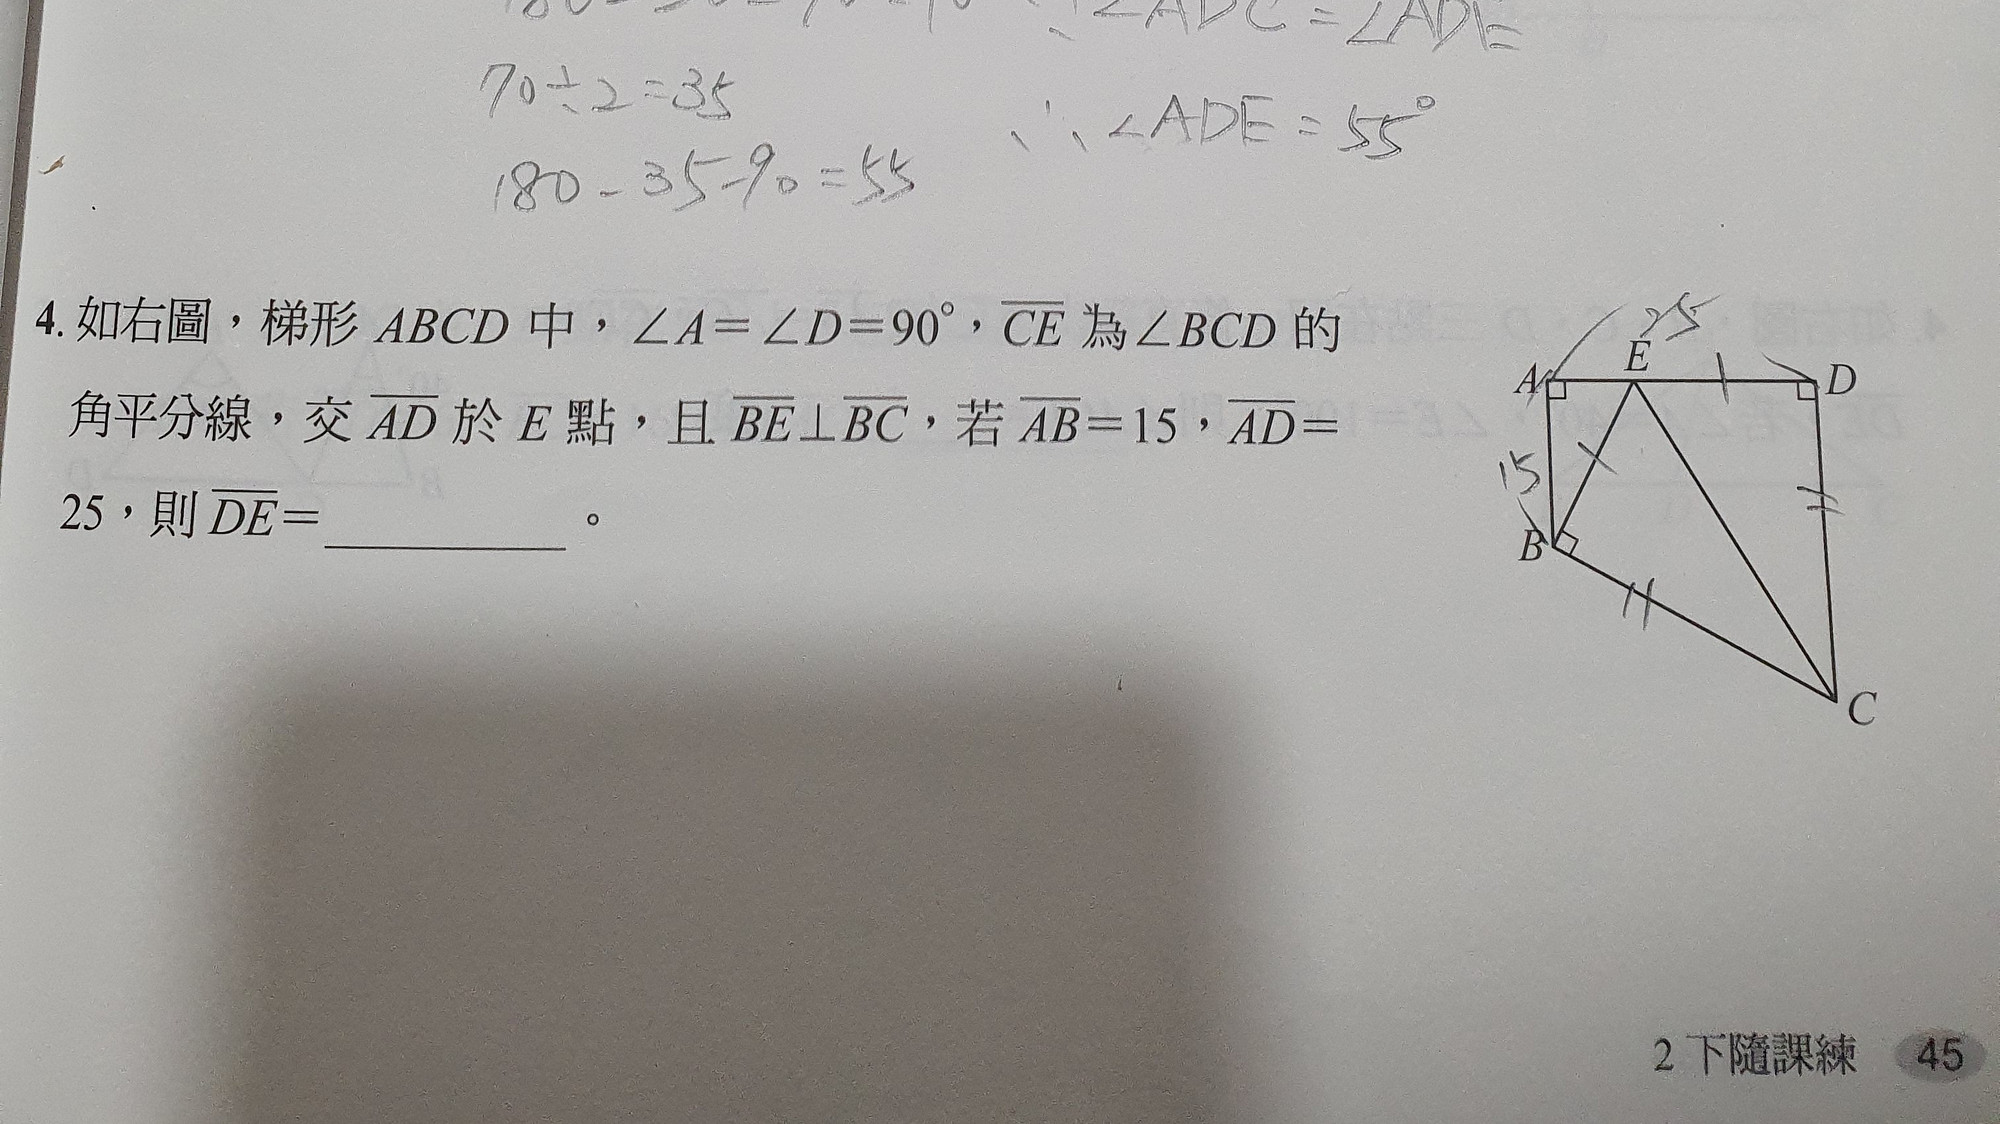 ∠ADC=∠ADE
70÷2=35
∴∠ADE=55°
180-35-90=55
4. 如右圖，梯形 ABCD 中，∠A=∠D=90°，CE 為∠BCD 的
角平分線，交 AD 於 E 點，且 BE⊥BC，若 AB=15，AD=
25，則 DE=＿＿＿＿＿。
25
A E D
15
B
C
2 下隨課練 45